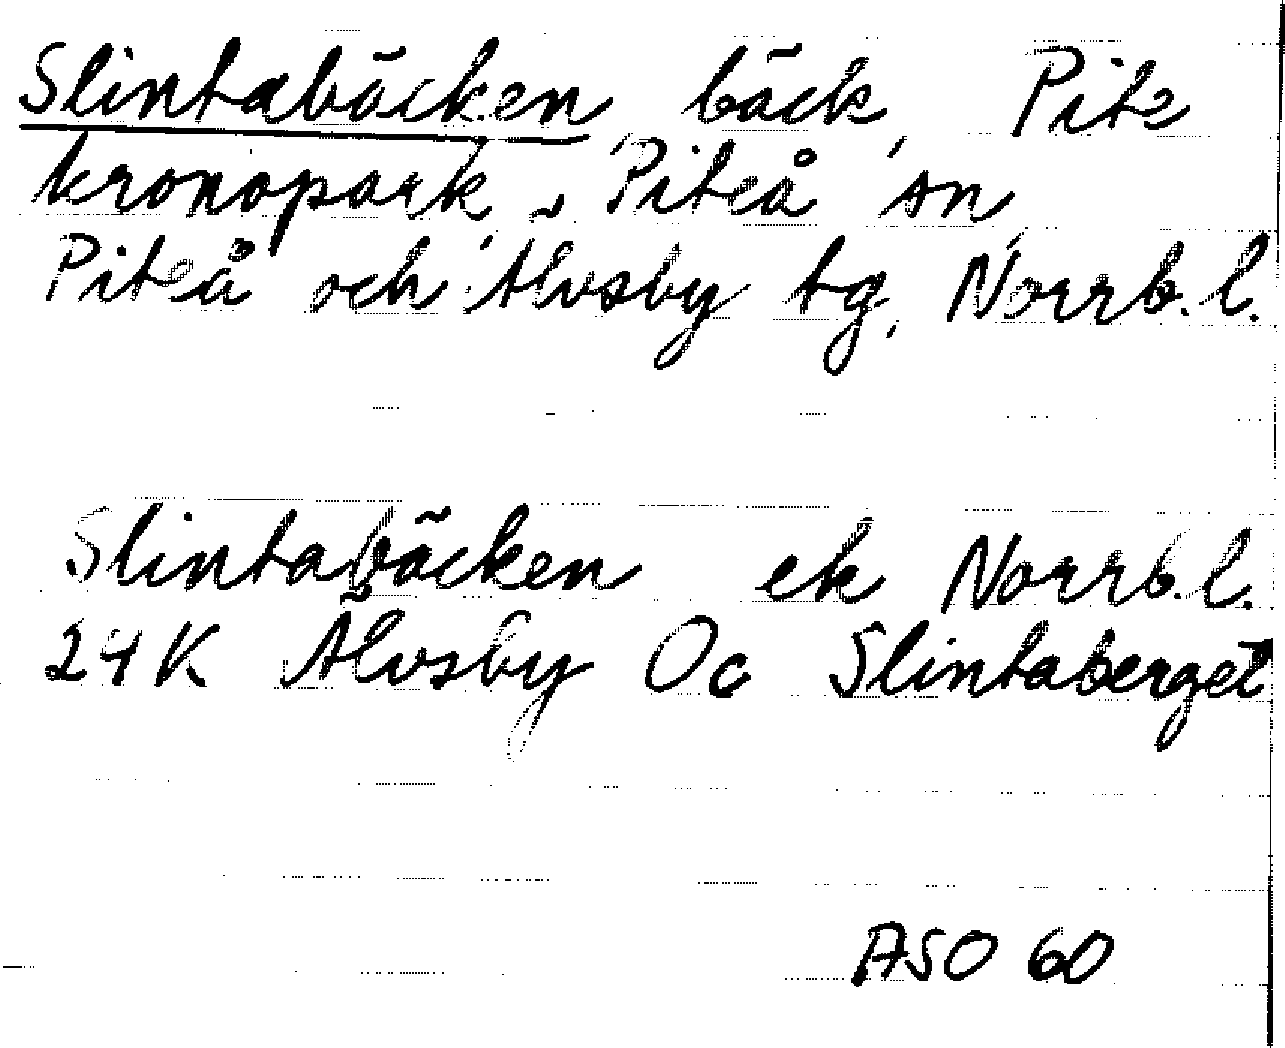 Slintabäcken, bäck, Pite
kronopark, Piteå sn,
Piteå och Älvsby tg, Norrb. l.
Slintabäcken ek Norrb. l.
24K Älvsby Oc Slintaberget
ASO 60